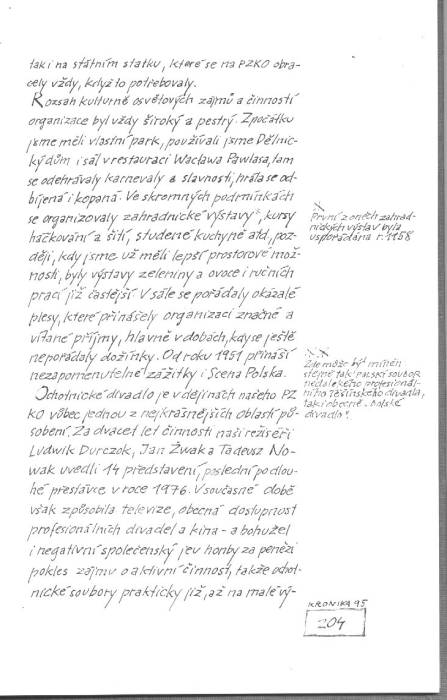 tak i na státním statku, které se na PZKO obra-
cely vždy, když to potřebovaly.
Rozsah kulturně osvětových zájmů a činností
organizace byl vždy široký a pestrý. Zpočátku
jsme měli vlastní park, používali jsme Dělnic-
ký dům i sál v restauraci Wacława Pawlasa, tam
se odehrávaly karnevaly a slavnosti, hrála se od-
bíjená i kopaná. Ve skromných podmínkách
se organizovaly zahradnické výstavy*, kursy
háčkování a šití, studené kuchyně atd., poz-
ději, kdy jsme už měli lepší prostorové mož-
nosti, byly výstavy zeleniny a ovoce i ručních
prací již častější. V sále se pořádaly okázalé
plesy, které přinášely organizaci značné a
vítané příjmy, hlavně v dobách, kdy se ještě
nepořádaly dožínky. Od roku 1951 přináší
nezapomenutelné zážitky i Scena Polska.
Ochotnické divadlo je v dějinách našeho PZ
KO vůbec jednou z nejkrásnějších oblastí pů-
sobení. Za dvacet let činnosti naši režiséři
Ludwik Durczok, Jan Żwak a Tadeusz No-
wak uvedli 14 představení, poslední po dlou-
hé přestávce v roce 1976. V současné době
však způsobila televize, obecná dostupnost
profesionálních divadel a kina - a bohužel
i negativní společenský jev honby za penězi
pokles zájmu o aktivní činnost, takže ochot-
nické soubory prakticky již, až na malé vý-
*
První z oněch zahrad-
nických výstav byla
uspořádána r. 1958
**
Zde může být míněn
stejně tak polský soubor
nedalekého profesionál-
ního těšínského divadla,
tak i obecně "polské
divadlo".
KRONIKA 95
204